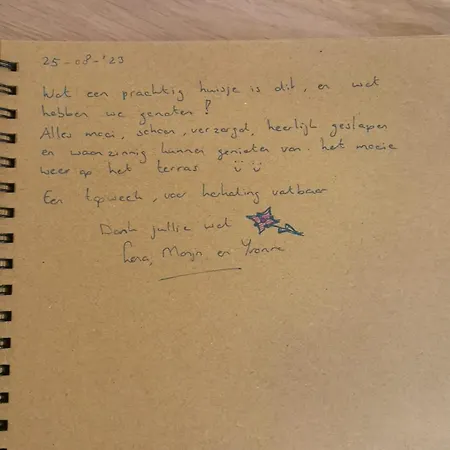 25-08-'23
Wat een prachtig huisje is dit, en wat
hebben we genoten!
Alles mooi, schoon, verzorgd, heerlijk geslapen
en waanzinnig kunnen genieten van het mooie
weer op het terras
Een topweek, voor herhaling vatbaar
Dank jullie wel
en Yvonne